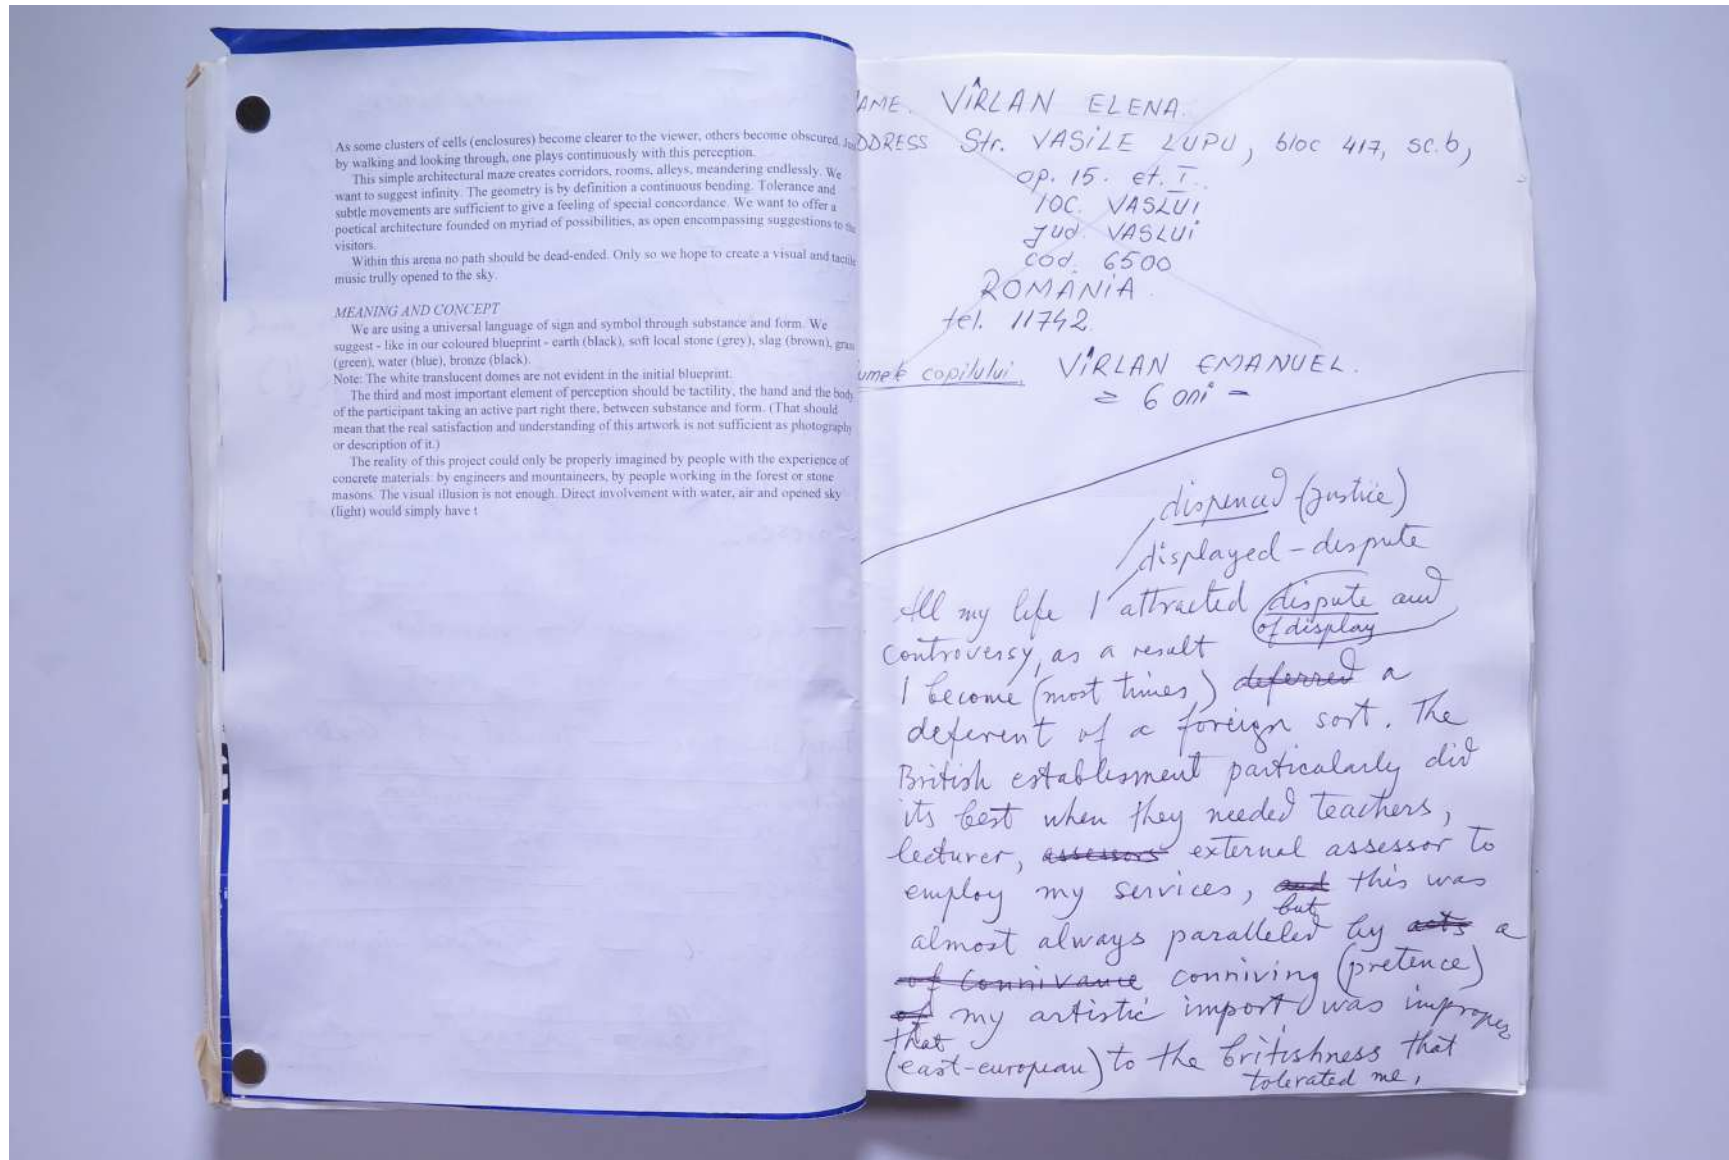 As some clusters of cells (enclosures) become clearer to the viewer, others become obscured.
by walking and looking through, one plays continuously with this perception.
This simple architectural maze creates corridors, rooms, alleys, meandering endlessly. We
want to suggest infinity. The geometry is by definition a continuous bending. Tolerance and
subtle movements are sufficient to give a feeling of special concordance. We want to offer a
poetical architecture founded on myriad of possibilities, as open encompassing suggestions to the
visitors.
Within this arena no path should be dead-ended. Only so we hope to create a visual and tactile
music trully opened to the sky.
MEANING AND CONCEPT
We are using a universal language of sign and symbol through substance and form. We
suggest - like in our coloured blueprint - earth (black), soft local stone (grey), slag (brown),
(green), water (blue), bronze (black).
Note: The white translucent domes are not evident in the initial blueprint.
The third and most important element of perception should be tactility, the hand and the body
of the participant taking an active part right there, between substance and form. (That should
mean that the real satisfaction and understanding of this artwork is not sufficient as photography
or description of it.)
The reality of this project could only be properly imagined by people with the experience of
concrete materials: by engineers and mountaineers, by people working in the forest or stone
masons. The visual illusion is not enough. Direct involvement with water, air and opened sky
(light) would simply have t
AME. VÎRLAN ELENA.
DDRESS Str. VASiLE LUPU, bloc 417, sc.b,
ap. 15. et. I.
loc. VASLUi
jud. VASLUi
cod. 6500
ROMÂNiA.
tel. 11742.
umele copilului. VÎRLAN EMANUEL.
= 6 ani =
dispenced (justice)
displayed - dispute
All my life I attracted dispute and
of display
controversy, as a result
I become (most times) deferred a
deferent of a foreign sort. The
British establisment particularly did
its best when they needed teachers,
lecturer, assessors external assessor to
employ my services, and this was
but
almost always paralleled by acts a
of connivance conniving (pretence)
of my artistic import was improper
that
(east-european) to the britishness that
tolerated me,